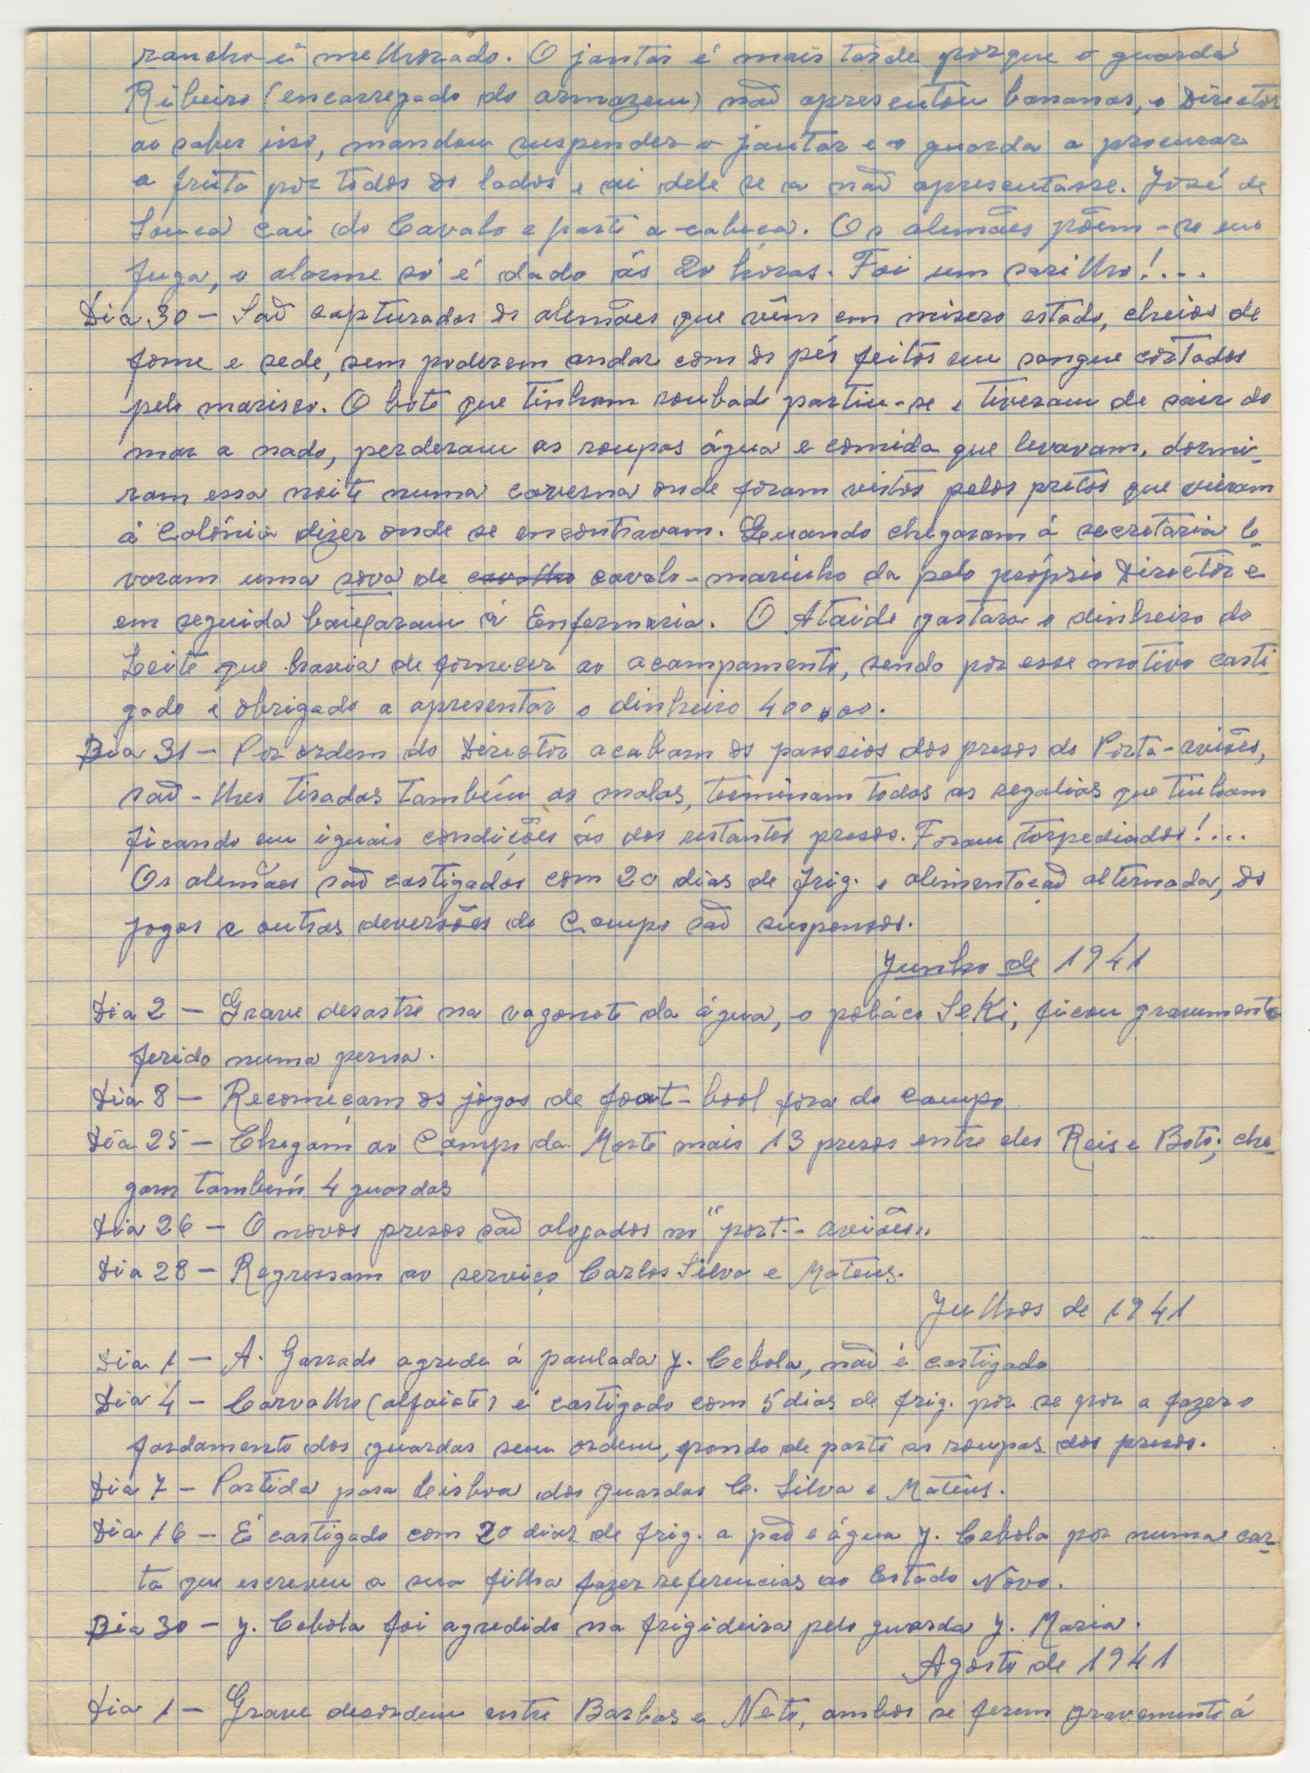 rancho é melhorado. O jantar é mais tarde porque o guarda
Ribeiro (encarregado do armazem) não apresentou bananas, o Director
ao saber isso, mandou suspender o jantar e o guarda a procurar
a fruta por todos os lados e ai dele se a não apresentasse. José de
Sousa cai do Cavalo e parte a cabeça. Os alemães põem-se em
fuga, o alarme só é dado ás 20 horas. Foi um sarilho!...
Dia 30 — São capturados os alemães que vêm em misero estado, cheios de
fome e sede, sem poderem andar com os pés feitos em sangue cortados
pelo marisco. O bote que tinham roubado partiu-se e tiveram de sair do
mar a nado, perderam as roupas água e comida que levavam, dormi-
ram essa noite numa caverna onde foram vistos pelos pretos que vieram
á Colónia dizer onde se encontravam. Quando chegaram á secretaria le-
varam uma sova de cavalo-marinho da pelo próprio Director e
em seguida baixaram á Enfermaria. O Ataide gastara o dinheiro do
Leite que havia de fornecer ao acampamento, sendo por esse motivo casti-
gado e obrigado a apresentar o dinheiro 400,00.
Dia 31 — Por ordem do Director acabam os passeios dos presos do Porta-aviões,
são-lhes tiradas também as malas, terminam todas as regalias que tinham
ficando em iguais condições ás dos restantes presos. Foram torpediados!...
Os alemães são castigados com 20 dias de frig. e alimentação alternada, os
jogos e outras deversões do Campo são suspensos.
Junho de 1941
Dia 2 — Grave desastre na vagonete da água, o poláco Seki, ficou gravemente
ferido numa perna.
Dia 8 — Recomeçam os jogos de foot-bool fora do campo
Dia 25 — Chegam ao Campo da Morte mais 13 presos entre eles Reis e Boto; che-
gam também 4 guardas
Dia 26 — O novos presos são alogados no "port-aviões"
Dia 28 — Regressam ao serviço Carlos Silva e Mateus.
Julhos de 1941
Dia 1 — A. Garrado agride á paulada J. Cebola, não é castigado
Dia 4 — Carvalho (alfaiate) é castigado com 5 dias de frig. por se por a fazer o
fardamento dos guardas sem ordem, pondo de parte as roupas dos presos.
Dia 7 — Partida para Leisboa dos guardas C. Silva e Mateus.
Dia 16 — É castigado com 20 dias de frig. a pão e água J. Cebola por numa car-
ta que escreveu a sua filha fazer referencias ao Estado Novo.
Dia 30 — J. Cebola foi agredido na frigideira pelo guarda J. Maria.
Agosto de 1941
Dia 1 — Grave desordem entre Barbas e Neto, ambos se ferem gravemente á